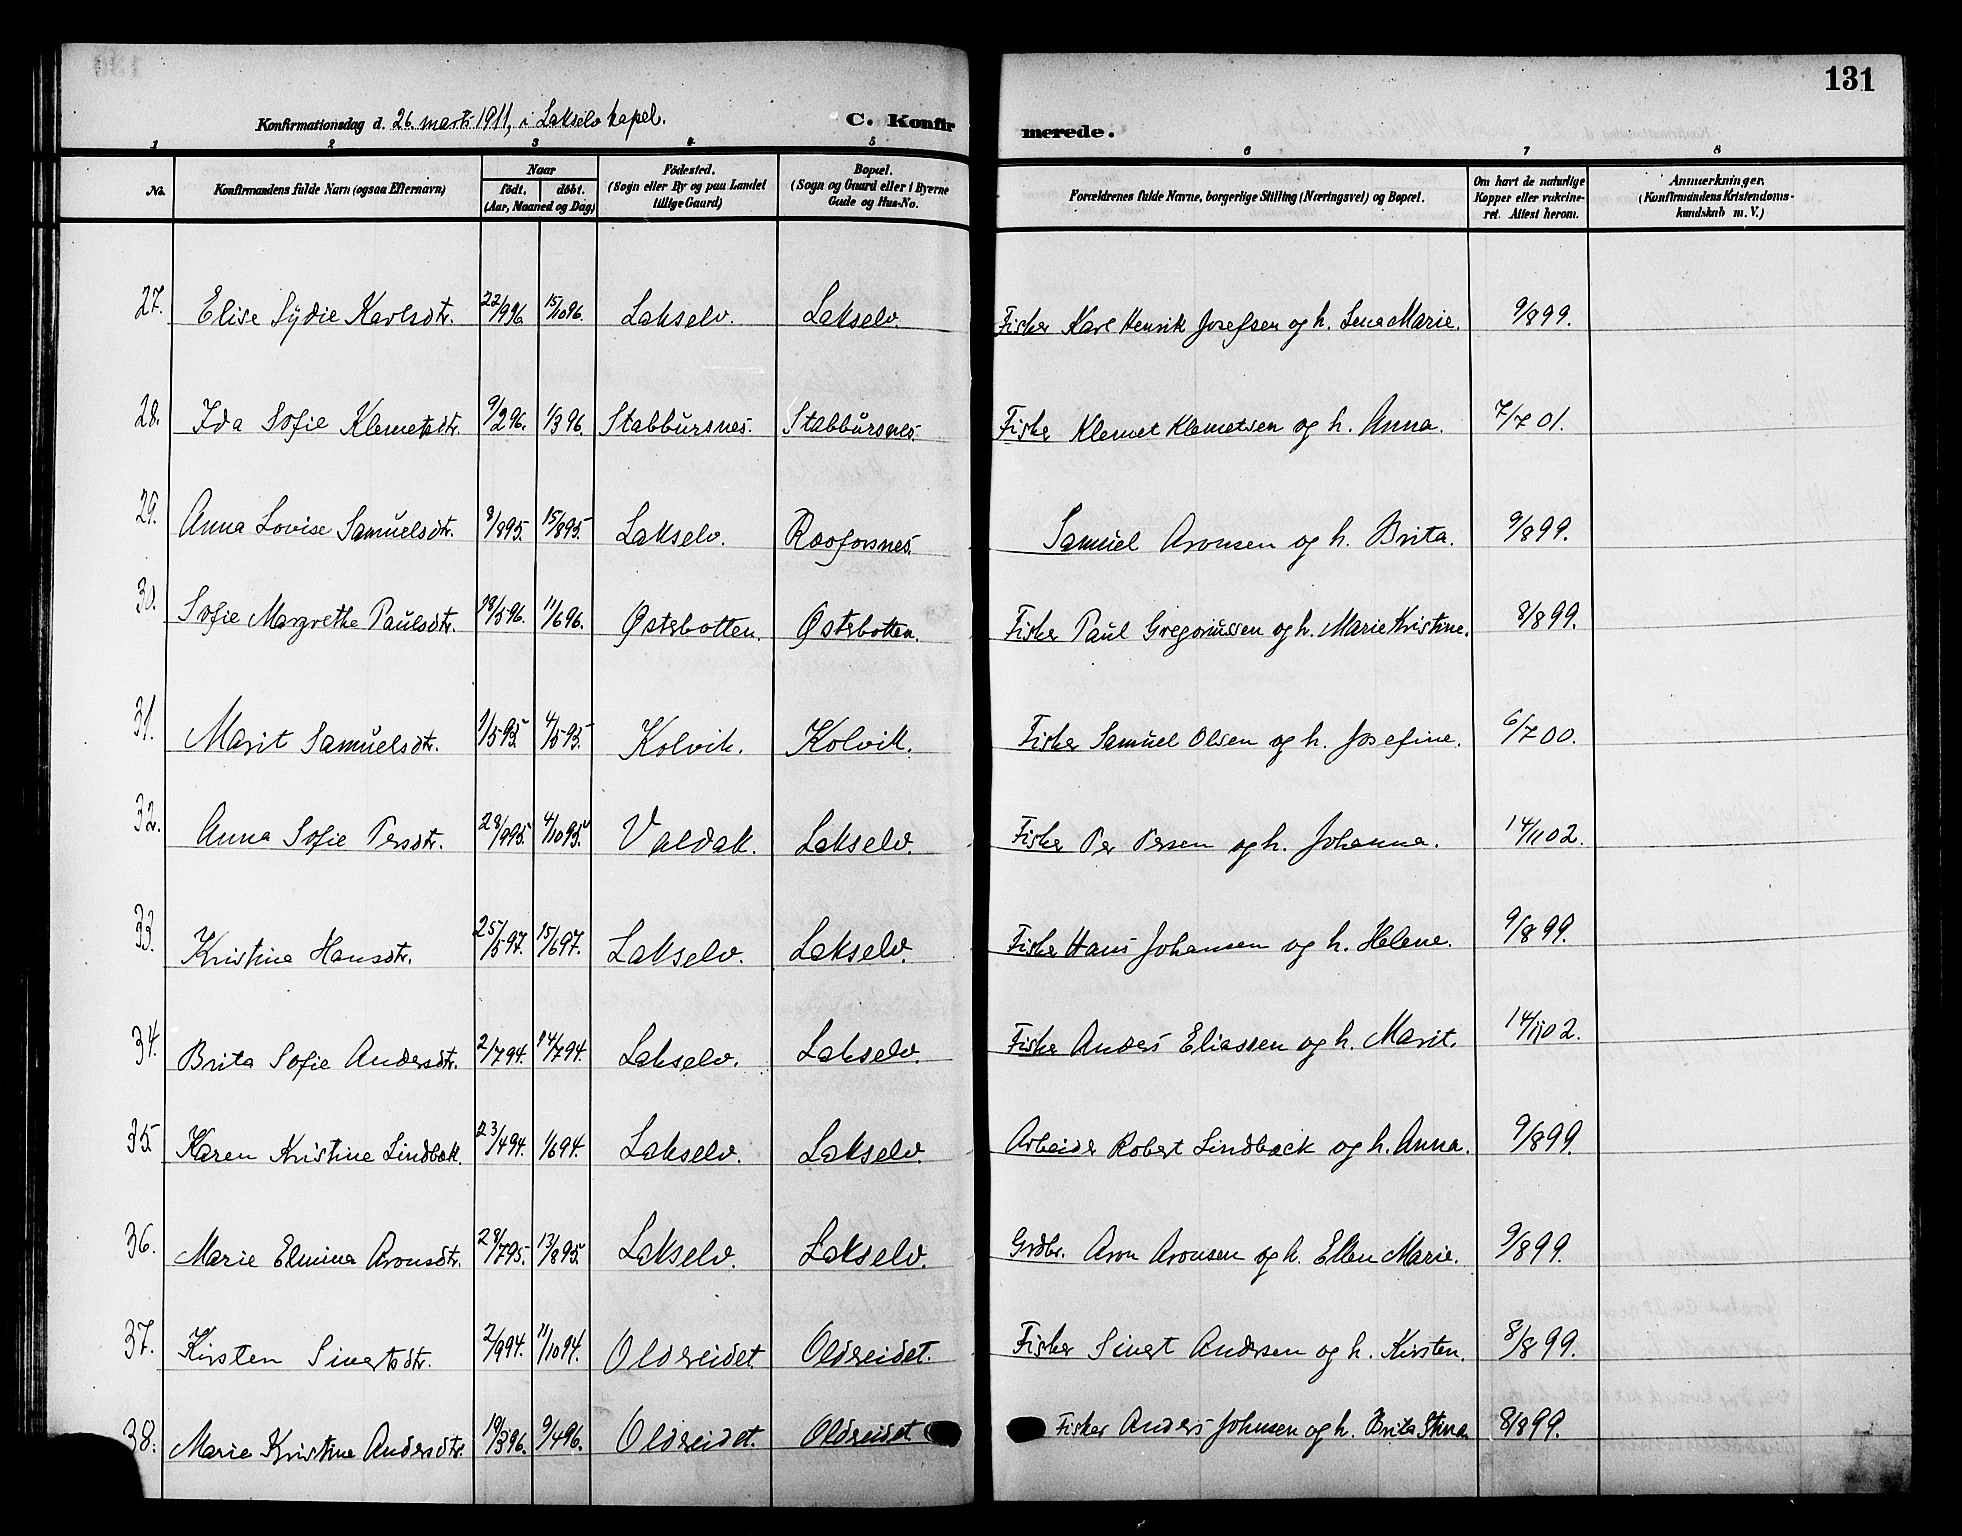 131
Konfirmationsdag d. 26. marts 1911, i Lakselv kapel. C. Konfirmerede.
1 2 3 4 5 6 7 8
No. Konfirmandens fulde Navn (ogsaa Efternavn) Naar født. døbt. (Aar, Maaned og Dag) Fødested. (Sogn eller By og paa Landet tillige Gaard) Bopæl. (Sogn og Gaard eller i Byerne Gade og Hus-No. Forældrenes fulde Navne, borgerlige Stilling (Næringsvei) og Bopæl. Om havt de naturlige Kopper eller vakcineret. Attest herom. Anmærkninger. (Konfirmandens Kristendomskundskab m. V.)
27. Elise Sydie Karlsdtr. 22/9 96. 15/10 96. Lakselv. Lakselv. Fisker Karl Henrik Josefsen og h. Lena Marie. 9/8 99.
28. Ida Sofie Klemetsdtr. 9/2 96. 1/3 96. Stabbursnes. Stabbursnes. Fisker Klemet Klemetsen og h. Anna. 7/7 01.
29. Anna Lovise Samuelsdtr. 8/8 95. 15/8 95. Lakselv. Samuel Aronsen og h. Brita. 9/8 99.
30. Sofie Margrethe Paulsdtr. 18/5 96. 11/6 96. Østerbotten. Østerbotten. Fisker Paul Gregoriussen og h. Marie Kristine. 8/8 99.
31. Marit Samuelsdtr. 1/5 95. 4/5 95. Kolvik. Kolvik. Fisker Samuel Olsen og h. Josefine. 6/7 00.
32. Anna Sofie Persdtr. 28/9 95. 4/10 95. Valdak. Lakselv. Fisker Per Persen og h. Johanna. 14/11 02.
33. Kristine Hansdtr. 25/5 97. 15/6 97. Lakselv. Lakselv. Fisker Hans Johansen og h. Helene. 9/8 99.
34. Brita Sofie Andersdtr. 2/7 94. 14/7 94. Lakselv. Lakselv. Fisker Anders Eliassen og h. Marit. 14/11 02.
35 Karen Kristine Lindbæk. 23/4 94. 1/6 94. Lakselv. Lakselv. Arbeider Robert Lindbæck og h. Anna. 9/8 99.
36. Marie Elmine Aronsdtr. 28/7 95. 13/8 95. Lakselv. Lakselv. Grdbr. Aron Aronsen og h. Ellen Marie. 9/8 99.
37. Kirsten Sivertsdtr. 2/9 94. 11/10 94. Oldereidet Oldereidet. Fisker Sivert Andersen og h. Kirsten. 8/8 99.
38. Marie Kristine Andersdtr. 19/3 96. 9/4 96. Oldereidet. Oldereidet Fisker Anders Johnsen og h. Brita Stina 8/8 99.